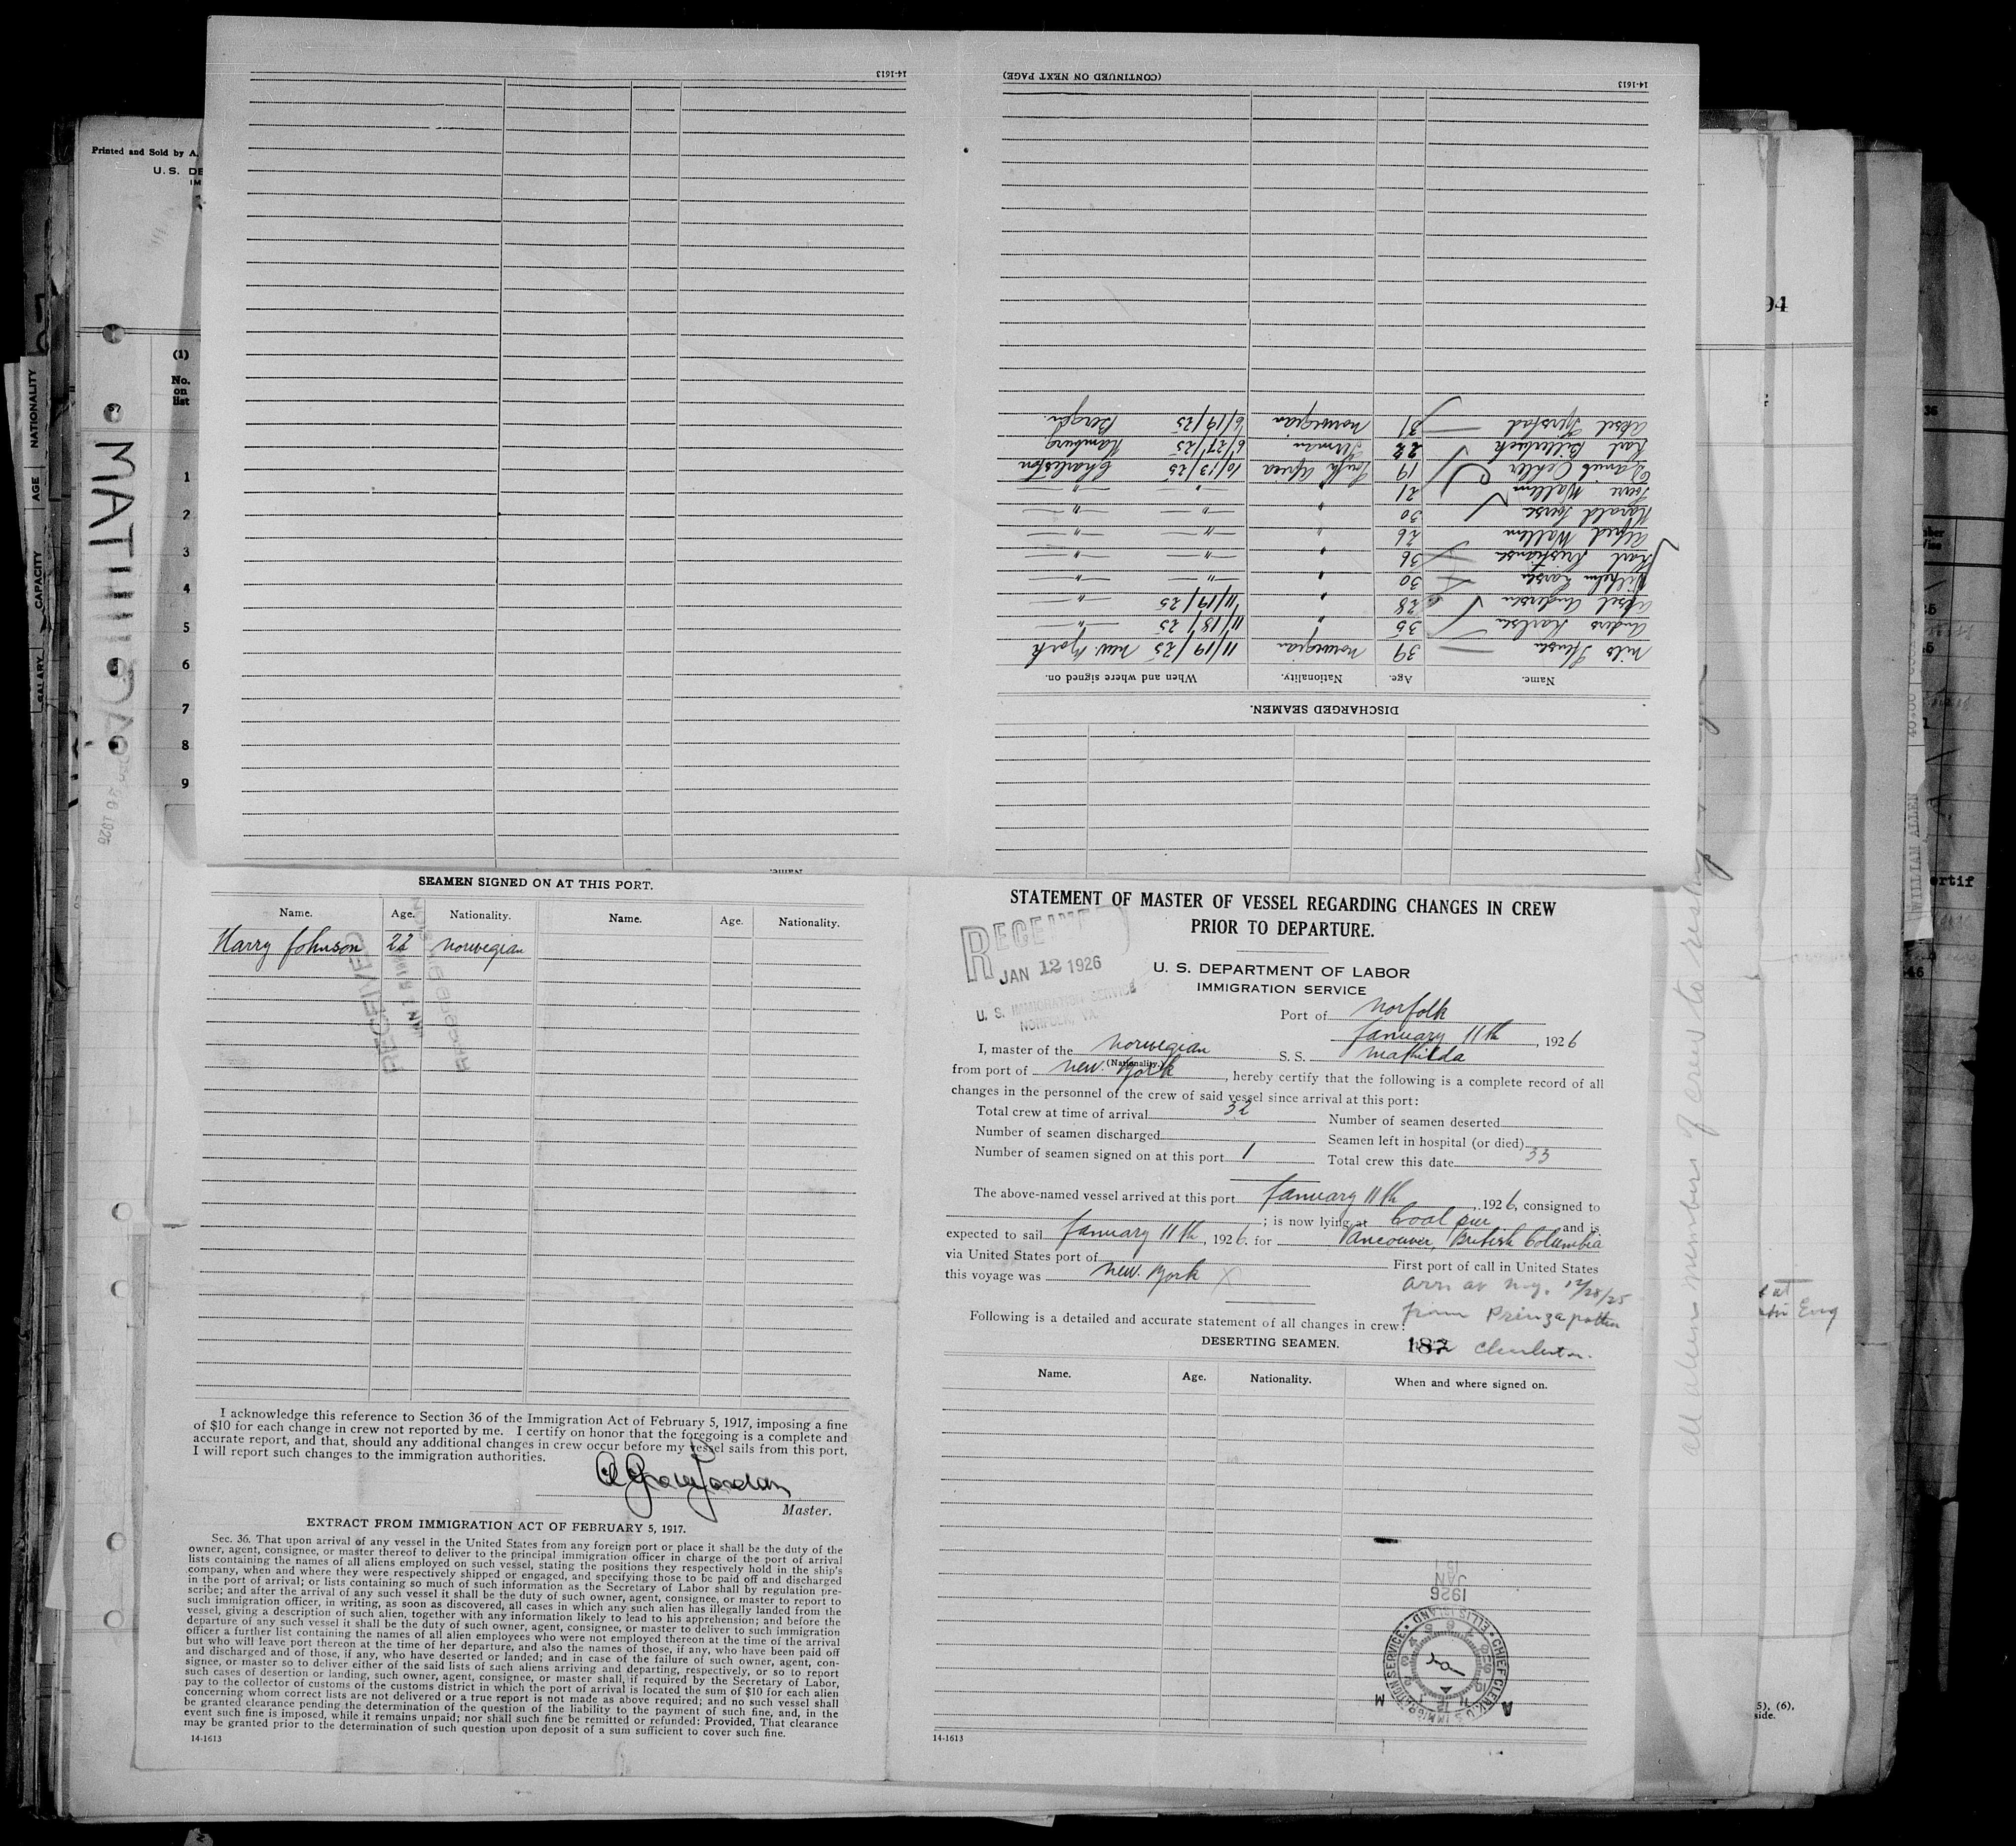 14-1613
(CONTINUED ON NEXT PAGE)
14-1613
Printed and Sold by A.
U. S. DE
IM
94
(1)
No.
on
list
NATIONALITY
AGE
CAPACITY
SALARY
57
MATHILDA
1926
1
2
3
4
5
6
7
8
9
DISCHARGED SEAMEN.
Name. Age. Nationality. When and where signed on.
Nils 39 Norwegian 11/19/25 New. York
Anders Karlsen 35 " 11/18/25 — " —
Aksel Andersen 28 " 11/19/25 — " —
Wilhelm Larsen 30 " — " — — " —
Karl Kristiansen 36 " — " — — " —
Alfred Wallem 26 " — " — — " —
Harald 30 " — " — — " —
Wallem 21 " — " — — " —
Oehler 19 South Africa 10/13/25 Charleston
Karl 22 German 6/27/25 Hamburg
Aksel 31 Norwegian 6/19/25 Bergen.
Name.
WILLIAM ALLEN
ertif
all alien members of crew to reship
SEAMEN SIGNED ON AT THIS PORT.
Name. Age. Nationality. Name. Age. Nationality.
Harry Johnson 22 Norwegian
RECEIVED
I acknowledge this reference to Section 36 of the Immigration Act of February 5, 1917, imposing a fine
of $10 for each change in crew not reported by me. I certify on honor that the foregoing is a complete and
accurate report, and that, should any additional changes in crew occur before my vessel sails from this port,
I will report such changes to the immigration authorities.
Master.
EXTRACT FROM IMMIGRATION ACT OF FEBRUARY 5, 1917.
Sec. 36. That upon arrival of any vessel in the United States from any foreign port or place it shall be the duty of the
owner, agent, consignee, or master thereof to deliver to the principal immigration officer in charge of the port of arrival
lists containing the names of all aliens employed on such vessel, stating the positions they respectively hold in the ship's
company, when and where they were respectively shipped or engaged, and specifying those to be paid off and discharged
in the port of arrival; or lists containing so much of such information as the Secretary of Labor shall by regulation pre-
scribe; and after the arrival of any such vessel it shall be the duty of such owner, agent, consignee, or master to report to
such immigration officer, in writing, as soon as discovered, all cases in which any such alien has illegally landed from the
vessel, giving a description of such alien, together with any information likely to lead to his apprehension; and before the
departure of any such vessel it shall be the duty of such owner, agent, consignee, or master to deliver to such immigration
officer a further list containing the names of all alien employees who were not employed thereon at the time of the arrival
but who will leave port thereon at the time of her departure, and also the names of those, if any, who have been paid off
and discharged and of those, if any, who have deserted or landed; and in case of the failure of such owner, agent, con-
signee, or master so to deliver either of the said lists of such aliens arriving and departing, respectively, or so to report
such cases of desertion or landing, such owner, agent, consignee, or master shall, if required by the Secretary of Labor,
pay to the collector of customs of the customs district in which the port of arrival is located the sum of $10 for each alien
concerning whom correct lists are not delivered or a true report is not made as above required; and no such vessel shall
be granted clearance pending the determination of the question of the liability to the payment of such fine, and, in the
event such fine is imposed, while it remains unpaid; nor shall such fine be remitted or refunded: Provided, That clearance
may be granted prior to the determination of such question upon deposit of a sum sufficient to cover such fine.
14-1613
STATEMENT OF MASTER OF VESSEL REGARDING CHANGES IN CREW
PRIOR TO DEPARTURE.
RECEIVED
JAN 12 1926
U. S. IMMIGRATION SERVICE
NORFOLK, VA.
U. S. DEPARTMENT OF LABOR
IMMIGRATION SERVICE
Port of Norfolk
January 11th, 1926
I, master of the Norwegian S. S. Mathilda
(Nationality.)
from port of New. York, hereby certify that the following is a complete record of all
changes in the personnel of the crew of said vessel since arrival at this port:
Total crew at time of arrival 32 Number of seamen deserted
Number of seamen discharged Seamen left in hospital (or died)
Number of seamen signed on at this port 1 Total crew this date 33
The above-named vessel arrived at this port January 11th, 1926, consigned to
; is now lying at Coal pier and is
expected to sail January 11th, 1926. for Vancouver, British Columbia
via United States port of First port of call in United States
this voyage was New. York X
arr at N.Y. 12/28/25
from Prinzapotka
Following is a detailed and accurate statement of all changes in crew:
DESERTING SEAMEN.
187 Charleston.
Name. Age. Nationality. When and where signed on.
JAN
1926
CHIEF CLERK U. S. IMMIGRATION SERVICE • ELLIS ISLAND •
A M
14-1613
at
Eng
5), (6),
side.